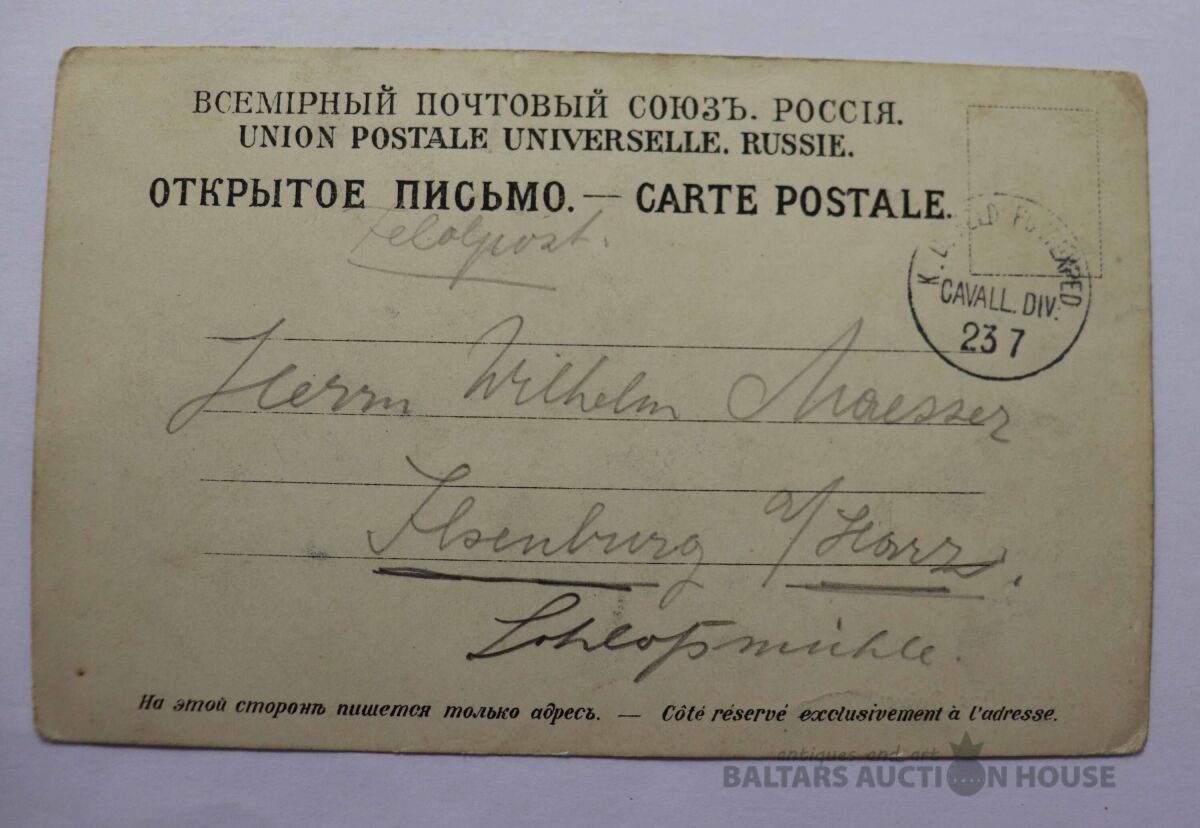 ВСЕМІРНЫЙ ПОЧТОВЫЙ СОЮЗЪ. РОССІЯ.
UNION POSTALE UNIVERSELLE. RUSSIE.
ОТКРЫТОЕ ПИСЬМО. — CARTE POSTALE.
Feldpost.
CAVALL. DIV.
23 7
Herrn Wilhelm Maesser
Ilsenburg a/Harz.
Schloßmühle.
На этой сторонѣ пишется только адресъ. — Côté réservé exclusivement à l'adresse.
antiques and art
BALTARS AUCTION HOUSE